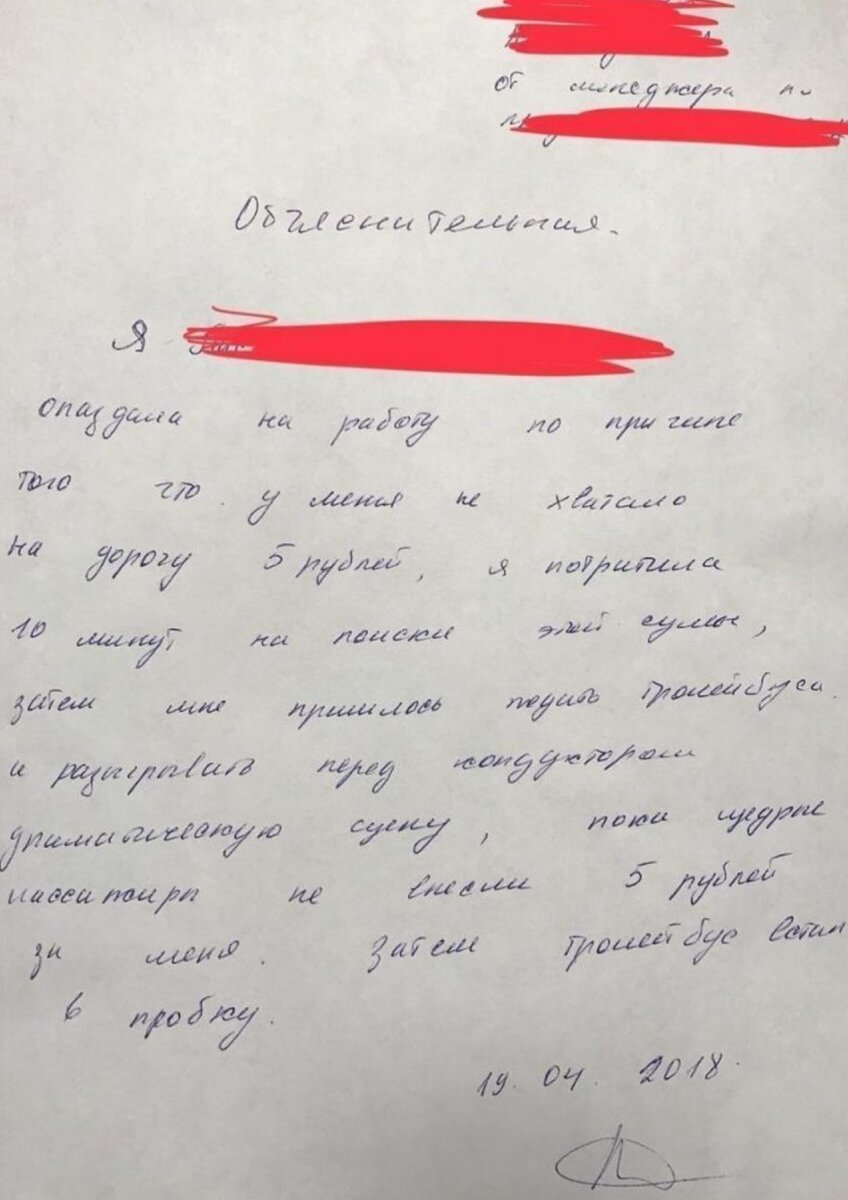 от менеджера по
Обьяснительная.
Я
опаздала на работу по причине
того что у меня не хватало
на дорогу 5 рублей, я потратила
10 минут на поиски этой сумы,
затем мне пришлось ждать тролейбуса
и разыгрывать перед кондуктором
драматическую сцену, пока щедрые
пассажиры не внесли 5 рублей
за меня. Затем тролейбус встал
в пробку.
19.04.2018.